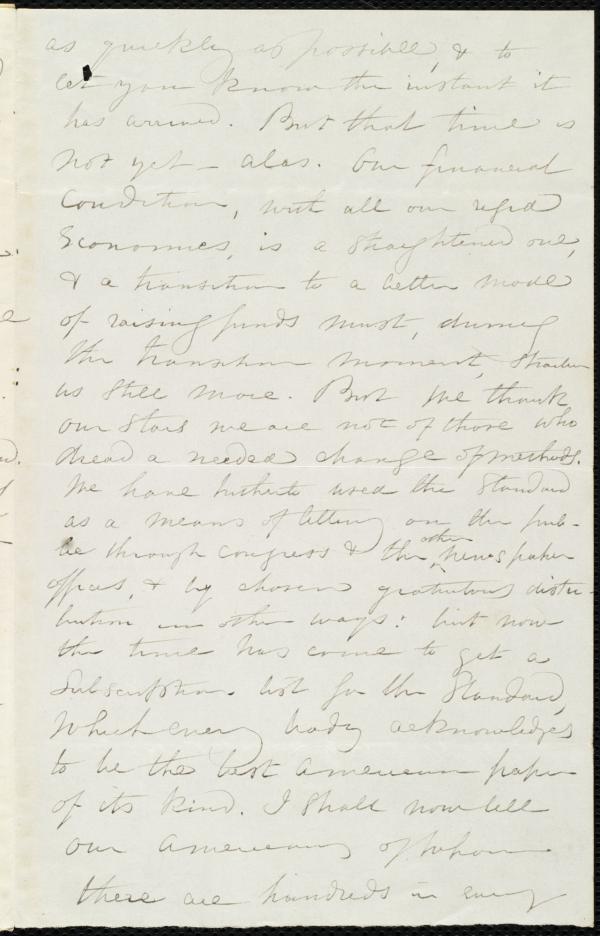 as quickly as possible, & to
let you know the instant it
has arrived. But that time is
not yet - alas. Our financial
Condition, with all our rigid
Economies, is a straightened one,
& a transition to a better mode
of raising funds must, during
the transition moment, straiten
us still more. But we thank
our stars we are not of those who
dread a needed change of methods.
We have hitherto used the Standard
as a means of letting on the pub-
lic through Congress & the other newspaper
offices, & by chosen gratuitous distri-
bution in other ways: but now
the time has come to get a
Subscription list for the Standard,
which every body acknowledges
to be the best American paper
of its kind. I shall now tell
our Americans of whom
there are hundreds in every